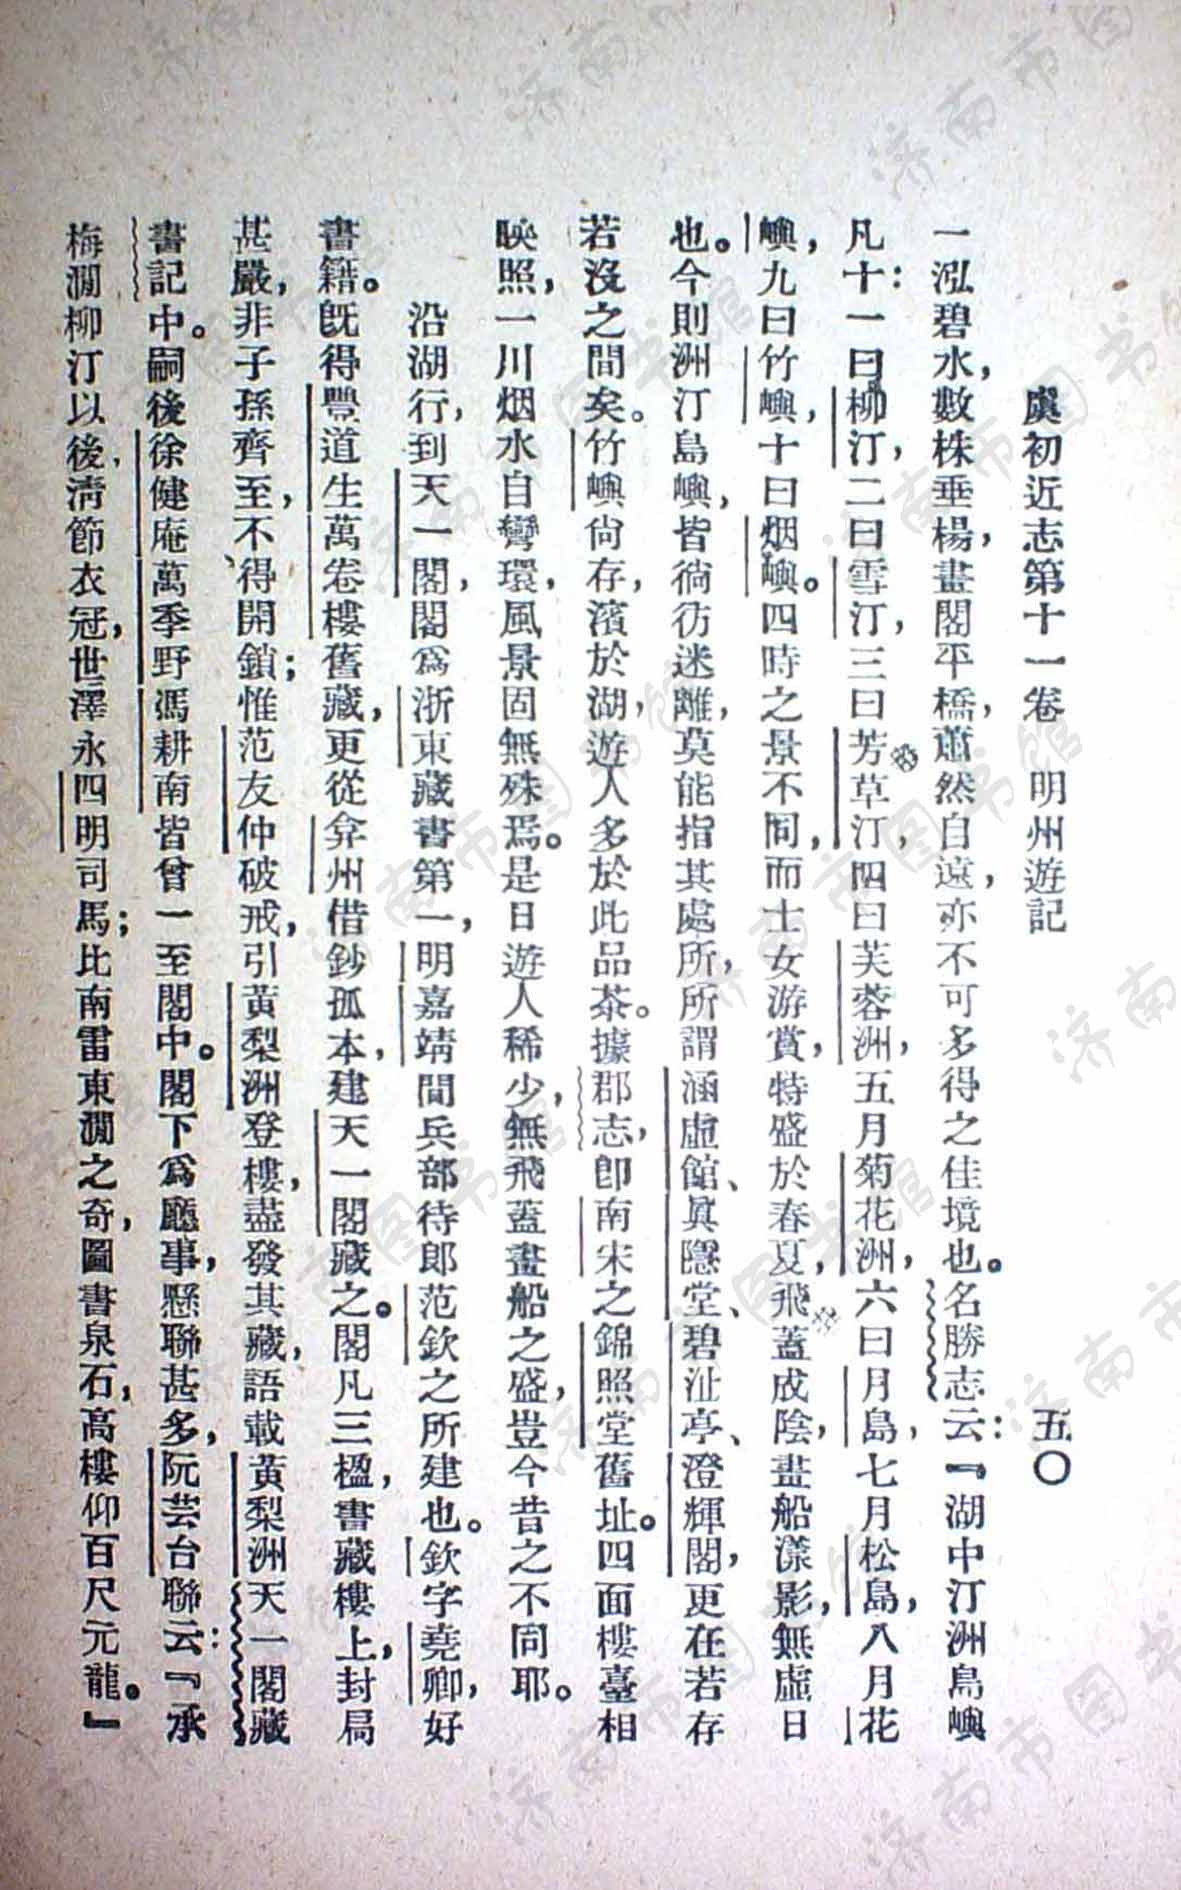 虞初近志第十一卷　明州遊記　五〇
一泓碧水，數株垂楊，畫閣平橋，蕭然自遠，亦不可多得之佳境也。名勝志云：『湖中汀洲島嶼
凡十：一曰柳汀，二曰雪汀，三曰芳草汀，四曰芙蓉洲，五月菊花洲，六曰月島，七月松島，八月花
嶼，九曰竹嶼，十曰烟嶼。四時之景不同，而士女游賞，特盛於春夏，飛蓋成陰，畫船漾影，無虛日
也。今則洲汀島嶼，皆徜彷迷離，莫能指其處所，所謂涵虛館、眞隱堂、碧沚亭、澄輝閣，更在若存
若沒之間矣。竹嶼尙存，濱於湖，遊人多於此品茶。據郡志，卽南宋之錦照堂舊址。四面樓臺相
映照，一川烟水自彎環，風景固無殊焉。是日遊人稀少，無飛蓋畫船之盛，豈今昔之不同耶。
沿湖行，到天一閣，閣爲浙東藏書第一，明嘉靖間兵部待郞范欽之所建也。欽字堯卿，好
書籍。旣得豐道生萬卷樓舊藏，更從弇州借鈔孤本，建天一閣藏之。閣凡三楹，書藏樓上，封局
甚嚴，非子孫齊至，不得開鎖；惟范友仲破戒，引黃梨洲登樓，盡發其藏，語載黃梨洲天一閣藏
書記中。嗣後徐健庵萬季野馮耕南皆曾一至閣中。閣下爲廳事，懸聯甚多，阮芸台聯云：『承
梅澗柳汀以後，淸節衣冠，世澤永四明司馬；比南雷東澗之奇，圖書泉石，高樓仰百尺元龍。』
济南市图书馆